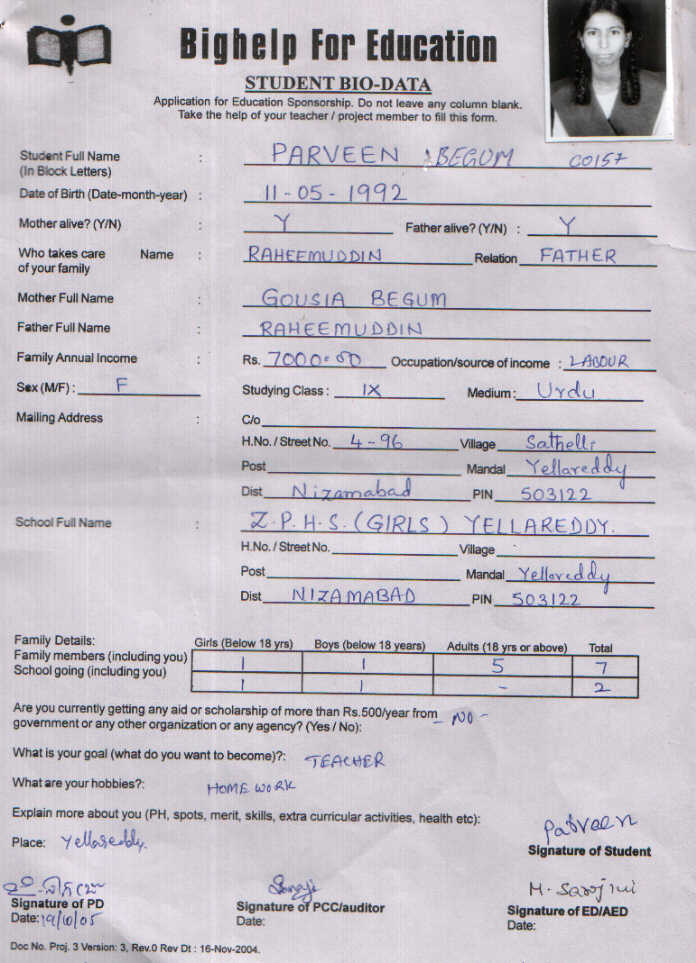 Bighelp For Education
STUDENT BIO-DATA
Application for Education Sponsorship. Do not leave any column blank.
Take the help of your teacher / project member to fill this form.
Student Full Name : PARVEEN BEGUM CO157
(In Block Letters)
Date of Birth (Date-month-year) : 11-05-1992
Mother alive? (Y/N) : Y Father alive? (Y/N) : Y
Who takes care Name : RAHEEMUDDIN Relation FATHER
of your family
Mother Full Name : GOUSIA BEGUM
Father Full Name : RAHEEMUDDIN
Family Annual Income : Rs. 7000.00 Occupation/source of income : LABOUR
Sex (M/F) : F Studying Class : IX Medium : Urdu
Mailing Address : C/o
H.No. / Street No. 4-96 Village Sathelli
Post Mandal Yellareddy
Dist Nizamabad PIN 503122
School Full Name : Z.P.H.S. (GIRLS) YELLAREDDY.
H.No. / Street No. Village
Post Mandal Yellareddy
Dist NIZAMABAD PIN 503122
Family Details: Girls (Below 18 yrs) Boys (below 18 years) Adults (18 yrs or above) Total
Family members (including you) 1 1 5 7
School going (including you) 1 1 - 2
Are you currently getting any aid or scholarship of more than Rs.500/year from - NO -
government or any other organization or any agency? (Yes / No):
What is your goal (what do you want to become)?: TEACHER
What are your hobbies?: HOME WORK
Explain more about you (PH, spots, merit, skills, extra curricular activities, health etc):
Parveen
Place: Yellareddy.
Signature of Student
M. Sarojini
Signature of PD Signature of PCC/auditor Signature of ED/AED
Date: 19/10/05 Date: Date:
Doc No. Proj. 3 Version: 3, Rev.0 Rev Dt : 16-Nov-2004.